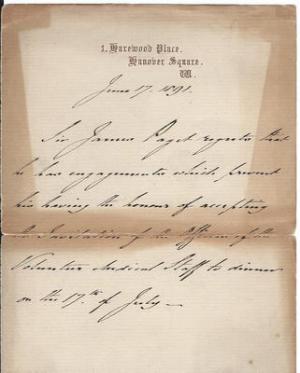 1, Harewood Place.
Hanover Square.
W.
June 17. 1891.
Sir James Paget regrets that
he has engagements which prevent
his having the honour of accepting
the Invitation of the Officers of the
Volunteer Medical Staff to dinner
on the 17th of July —